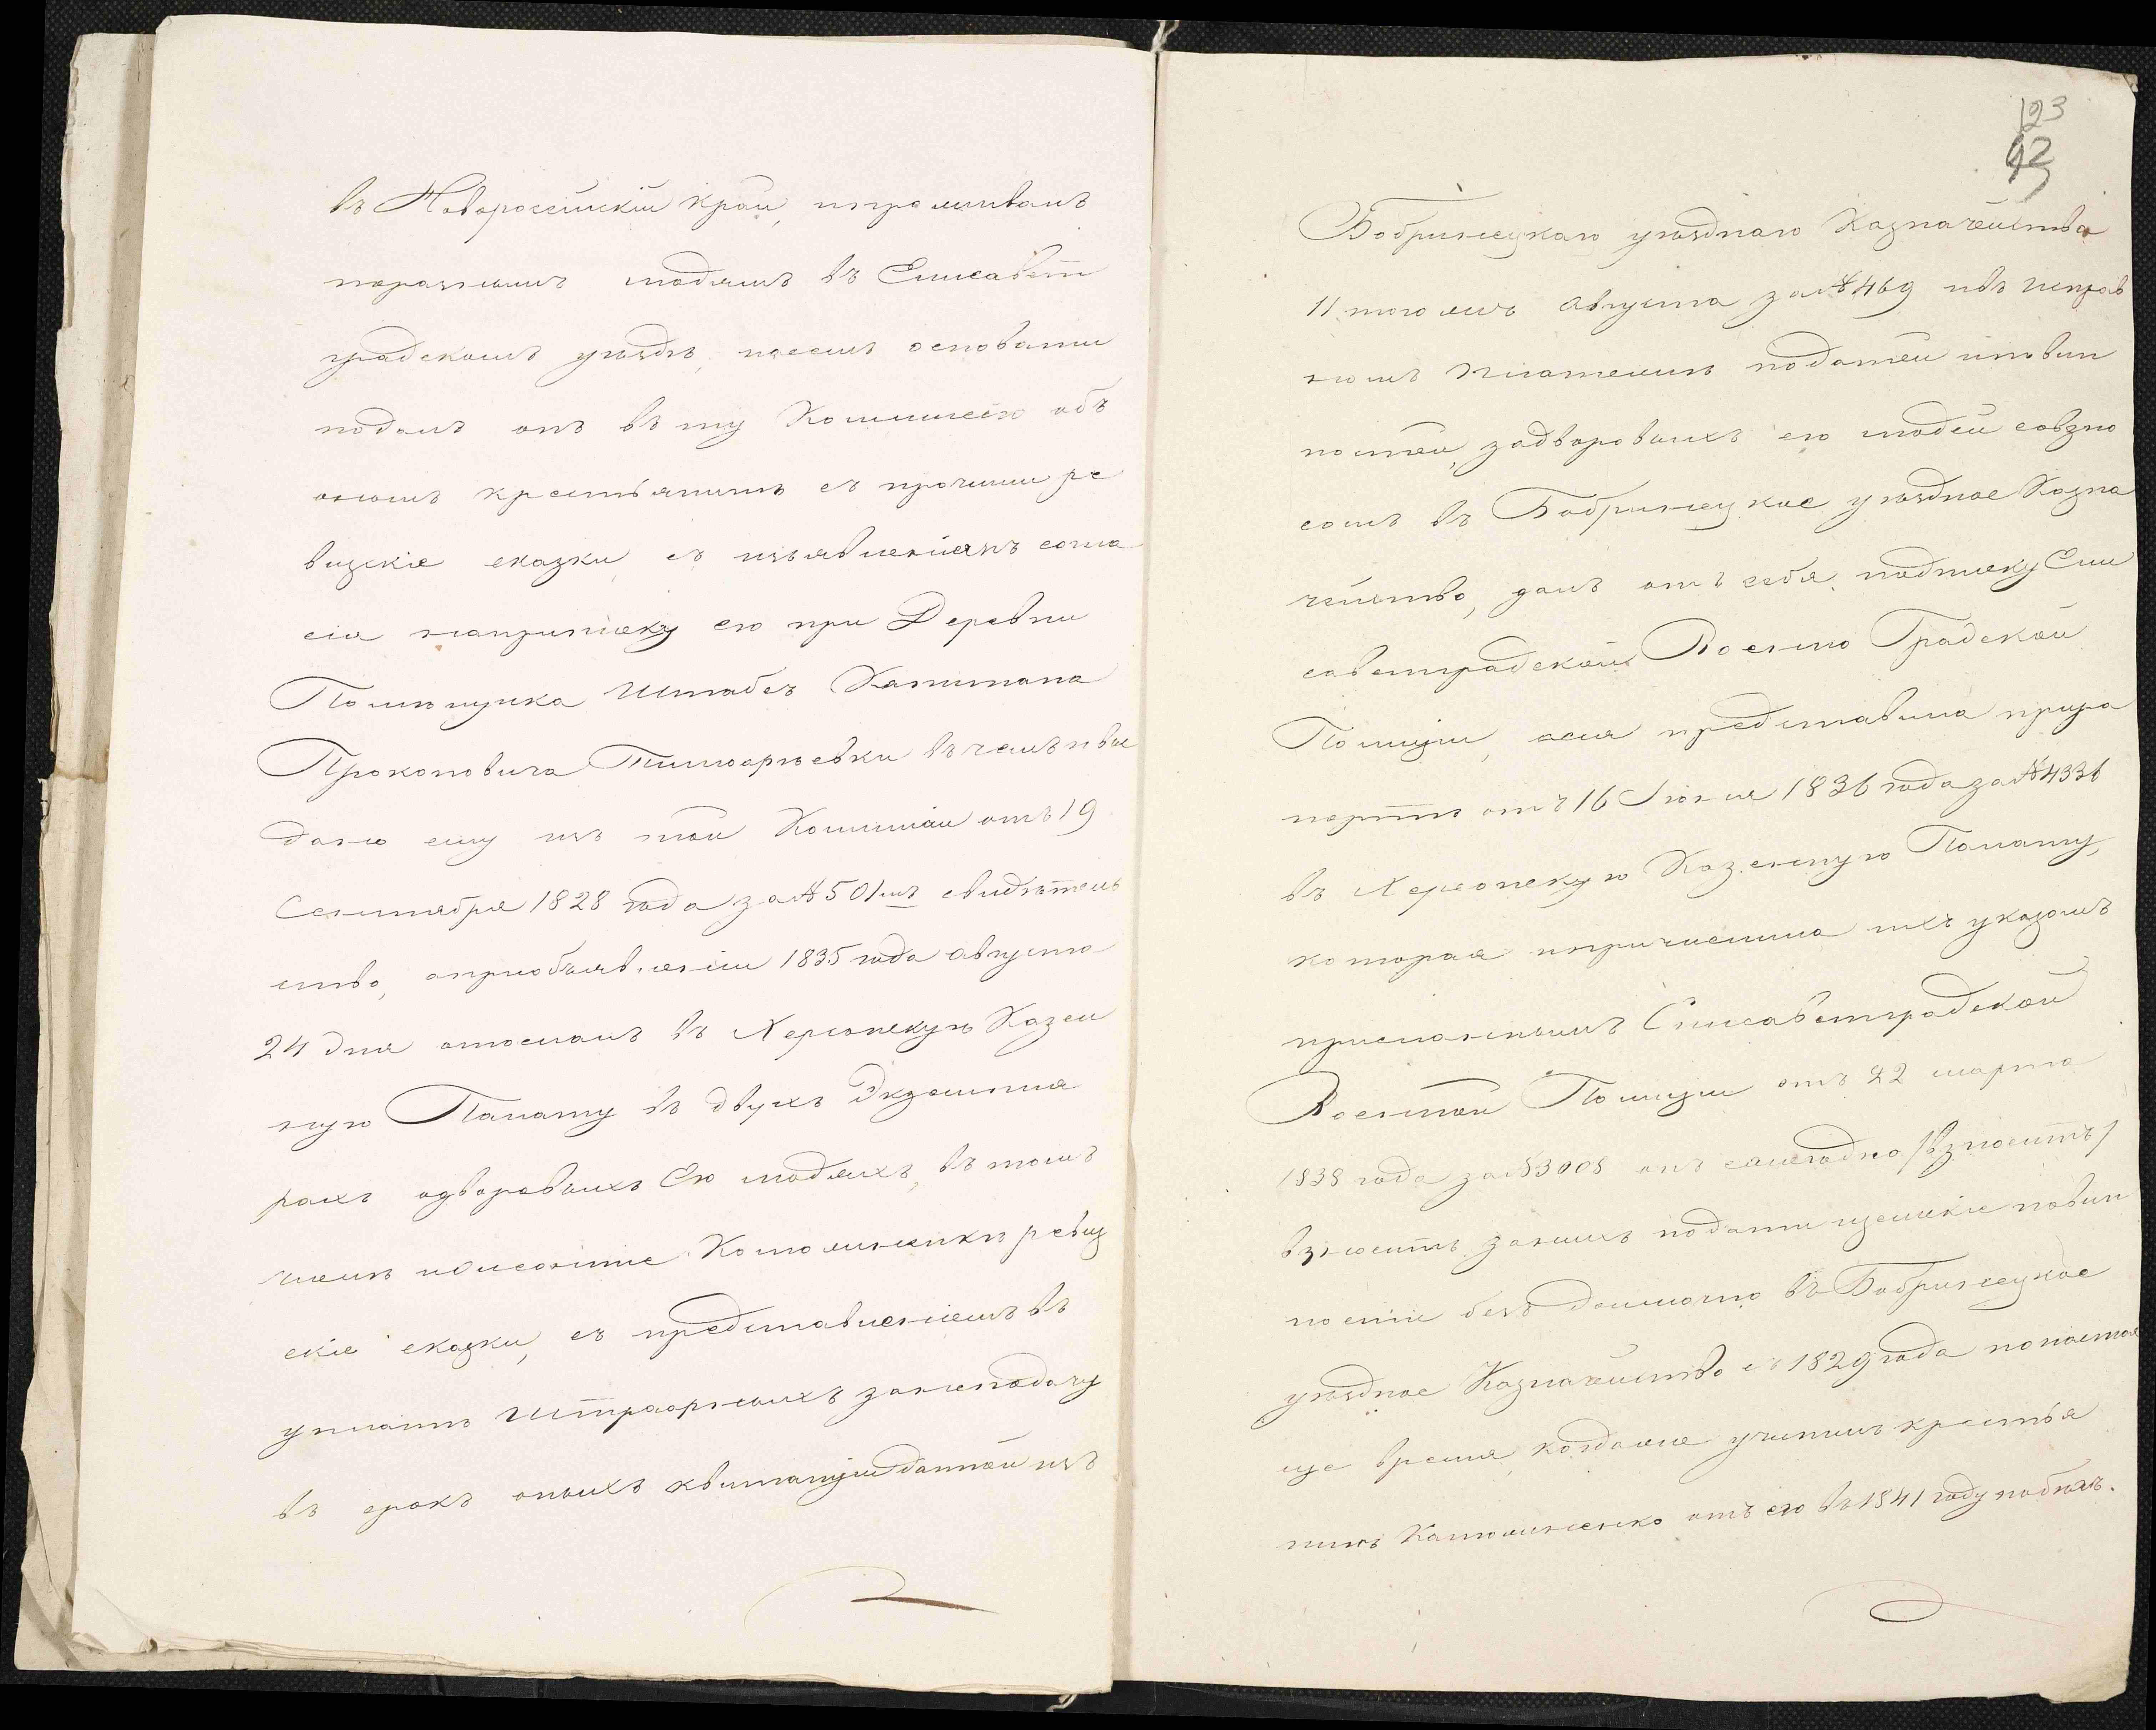 въ Новороссійскій край, и проживалъ
поразнымъ мѣстамъ въ Елисавет
градскомъ уѣздѣ, посемъ основаніи
подалъ онъ въ ту Коммисію объ
ономъ крестьянинѣ съ прочими ре
визскіе сказки, съ изъявленіемъ согла
сія на приписку его при Деревни
Помѣщика Штабсъ Капитана
Прокоповича въ чемъ и вы
дано ему изъ той Коммисіи отъ 19
Сентября 1828 года за № 501мъ свидѣтель
ство, априобъявленіи 1835 года августа
24 дня отослалъ въ Херсонскую Казен
ную Палату въ двухъ Экземпля
рахъ одворовыхъ Его людяхъ, въ томъ
числѣ ревиз
скіе сказки, съ представленіемъ въ
уплатѣ штрафныхъ занеподачу
въ срокъ оныхъ квитанціи данной изъ
123
Бобринецкаго уѣзднаго Казначейства
11 того жъ августа за № 469 и въ исправ
номъ платежѣ податей и повин
ностей, задворовыхъ его людей совзно
сомъ въ Бобринецкое уѣздное Казна
чейство, далъ отъ себя подписку Ели
саветградской Военно Градской
Полиціи, асія представила прира
портѣ отъ 16 Іюня 1836 года за № 4336
въ Херсонскую Казенную Палату,
которая ихъ указомъ
присланнымъ Елисаветградской
Военной Полиціи отъ 22 марта
1838 года за № 3008 онъ ежегодно /взноситъ/
взноситъ занихъ подати иземскіе повин
ности безъ доимочно въ Бобринецкое
уѣздное Казначейство съ 1829 года понастоя
ще время, когдаже учинилъ крестья
нинъ отъ его въ 1841 году побѣгъ.